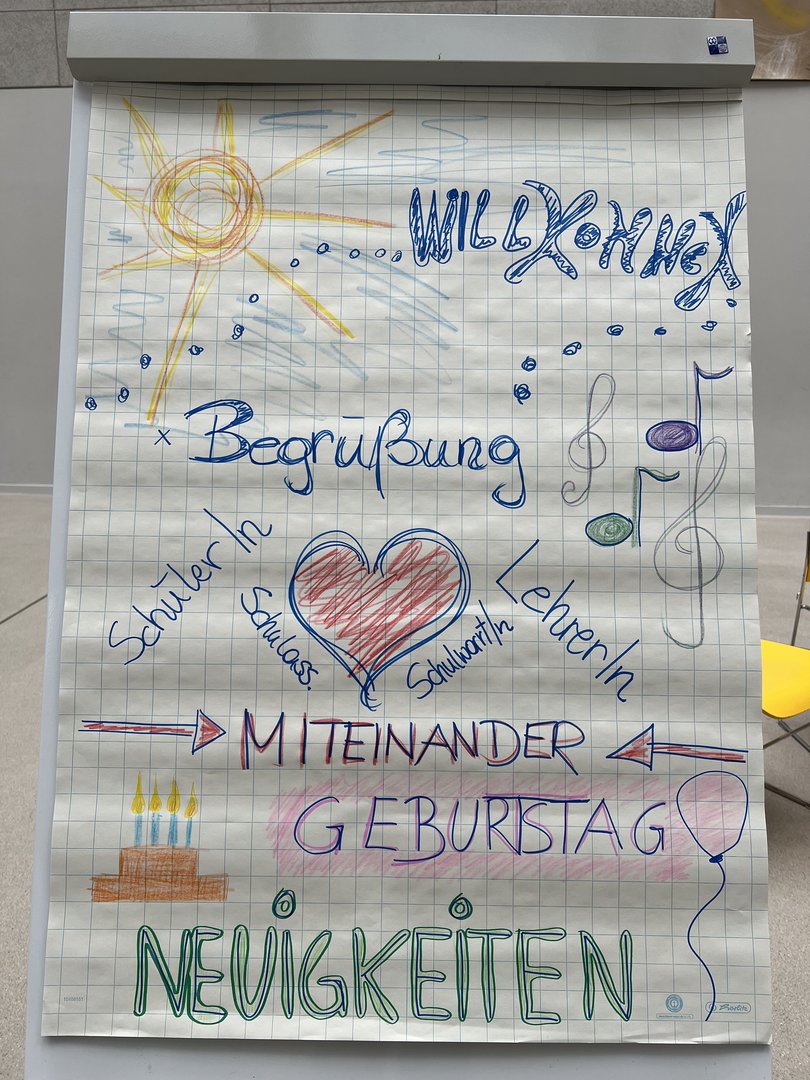 WILLKOMMEN
x Begrüßung
SchülerIn
LehrerIn
Schulass.
SchulwartIn
MITEINANDER
GEBURTSTAG
NEUIGKEITEN